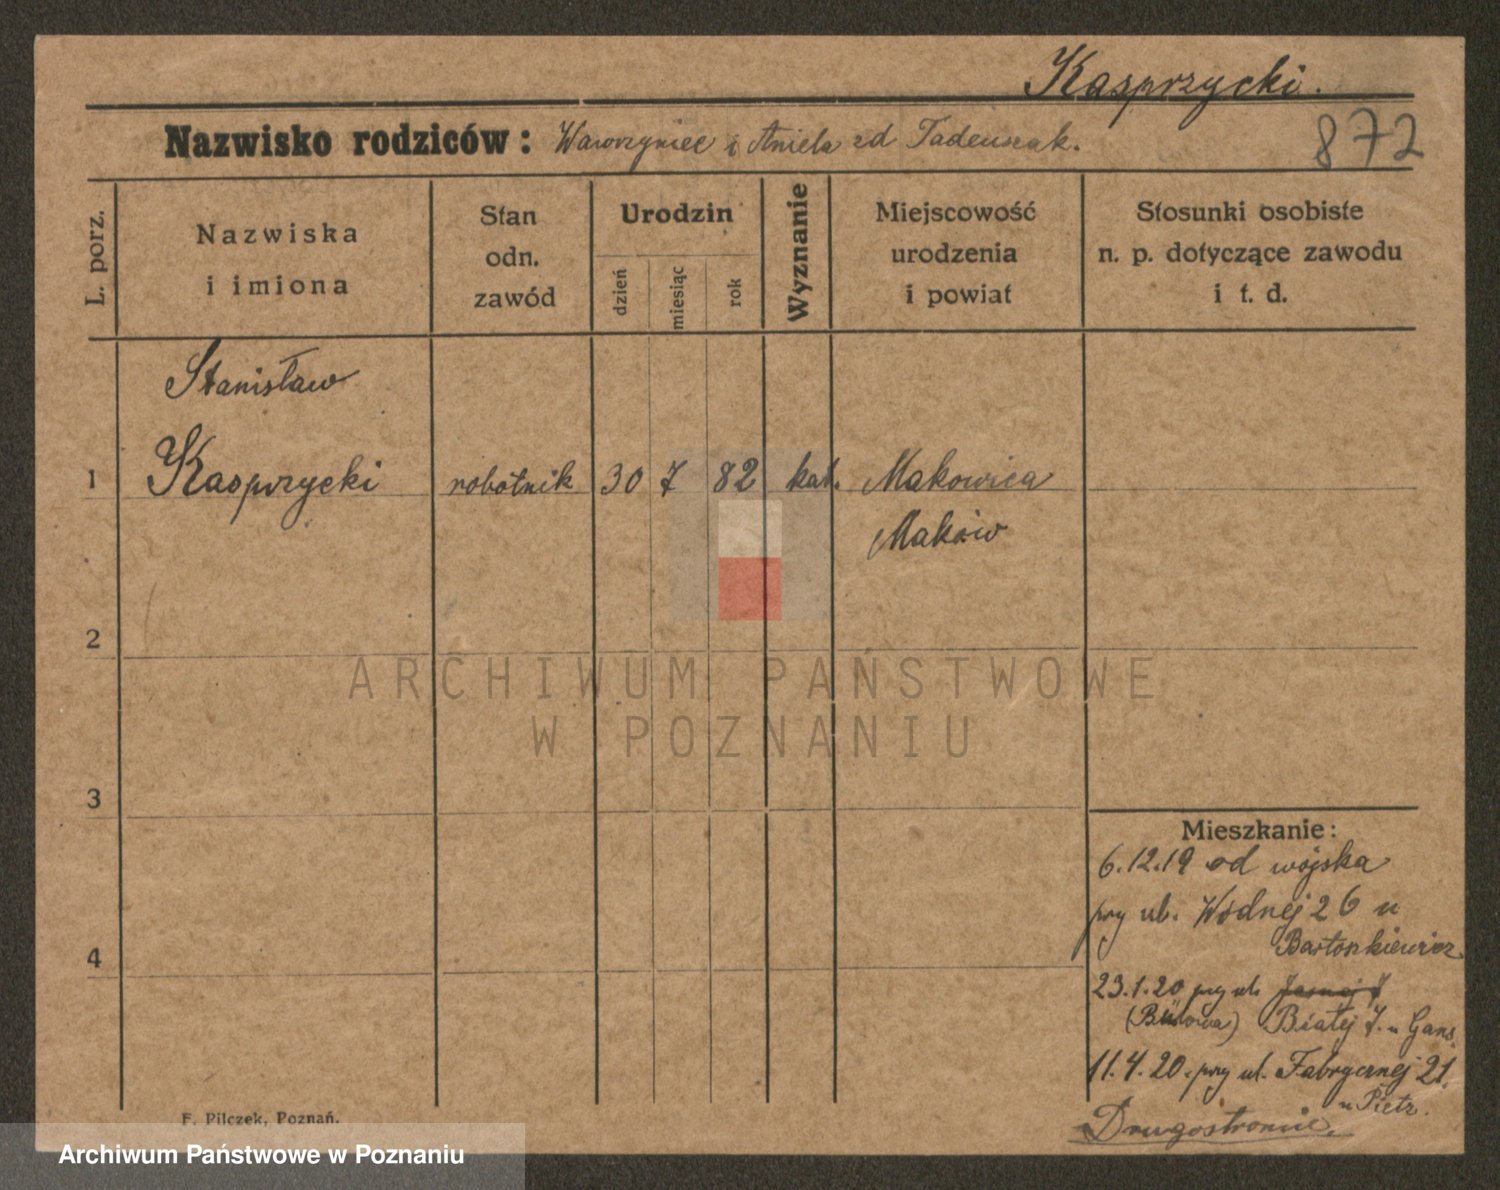 Kasprzycki.
Nazwisko rodziców: Wawrzyniec i Aniela zd Tadeuszak.
872
L. porz.
Nazwiska
i imiona
Stan
odn.
zawód
Urodzin
dzień
miesiąc
rok
Wyznanie
Miejscowość
urodzenia
i powiat
Stosunki osobiste
n. p. dotyczące zawodu
i t. d.
Stanisław
1 Kasprzycki robotnik 30 7 82 kat. Makowica
Maków
2
3
4
ARCHIWUM PAŃSTWOWE
W POZNANIU
Mieszkanie:
6.12.19 od wojska
przy ul. Wodnej 26 u
Bartoszkiewicz
23.1.20 przy ul. Jasnej 7
(Bülowa) Białej 7. u Gans.
11.4.20. przy ul. Fabrycznej 21.
u Pietz.
Drugostronnie.
F. Pilczek, Poznań.
Archiwum Państwowe w Poznaniu